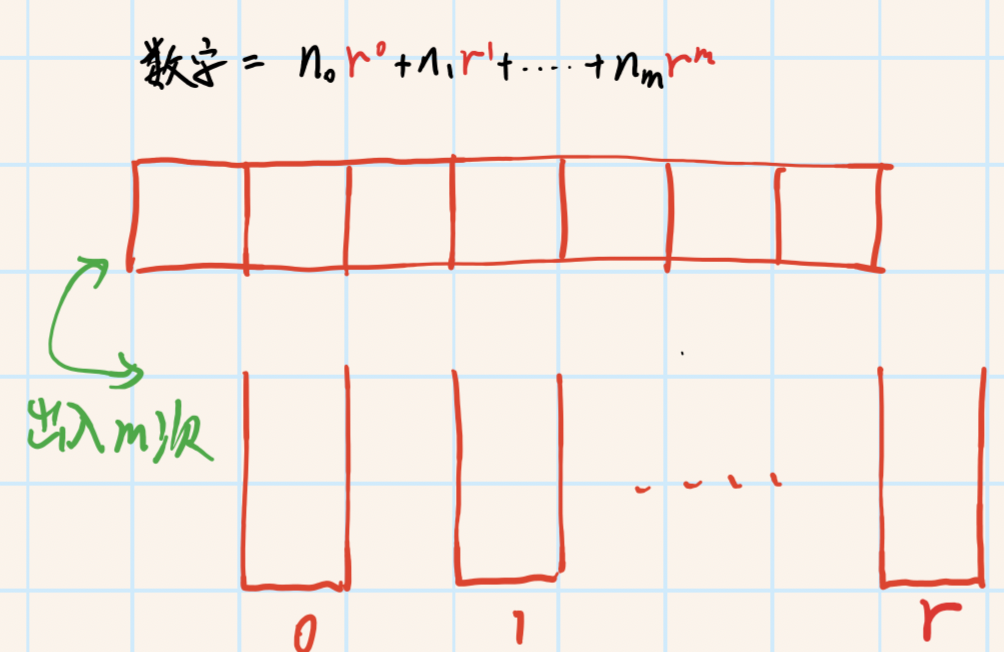 数字 = n₀r⁰+n₁r¹+.....+nₘrᵐ
出入m次
0 1 .... r